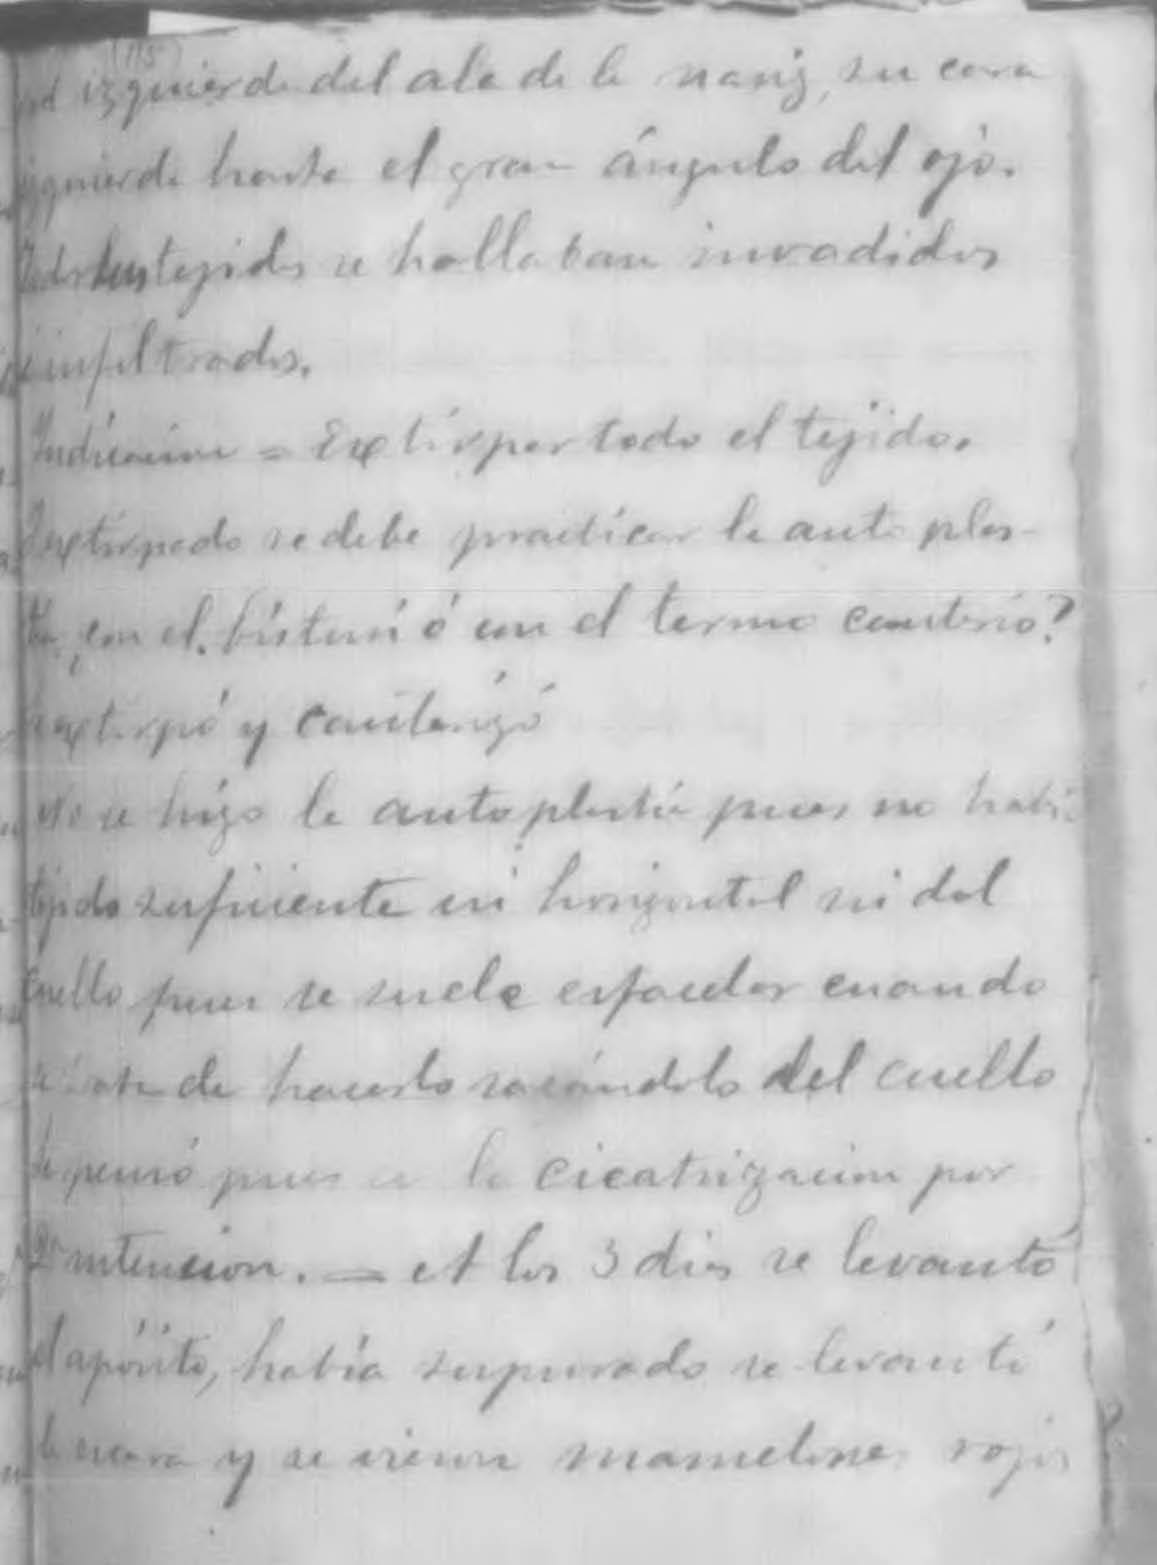 (115)
izquierda del ala de la nariz, su cara
izquierda hasta el gran ángulo del ojo.
Todos los tejidos se hallaban invadidos
e infiltrados.
Indicación = Extirpar todo el tejido.
Extirpado se debe practicar la autoplas-
tia, ¿con el bisturí ó con el termo cauterio?
Se extirpó y cauterizó
No se hizo la autoplastia pues no había
tejido suficiente ni horizontal ni del
cuello pues se suele esfacelar cuando
se trata de hacerlo sacándolo del cuello
Se pensó pues en la cicatrización por
2ª intencion. = A los 3 dias se levantó
el apósito, había supurado se levantó
la escara y se vieron mamelones rojos